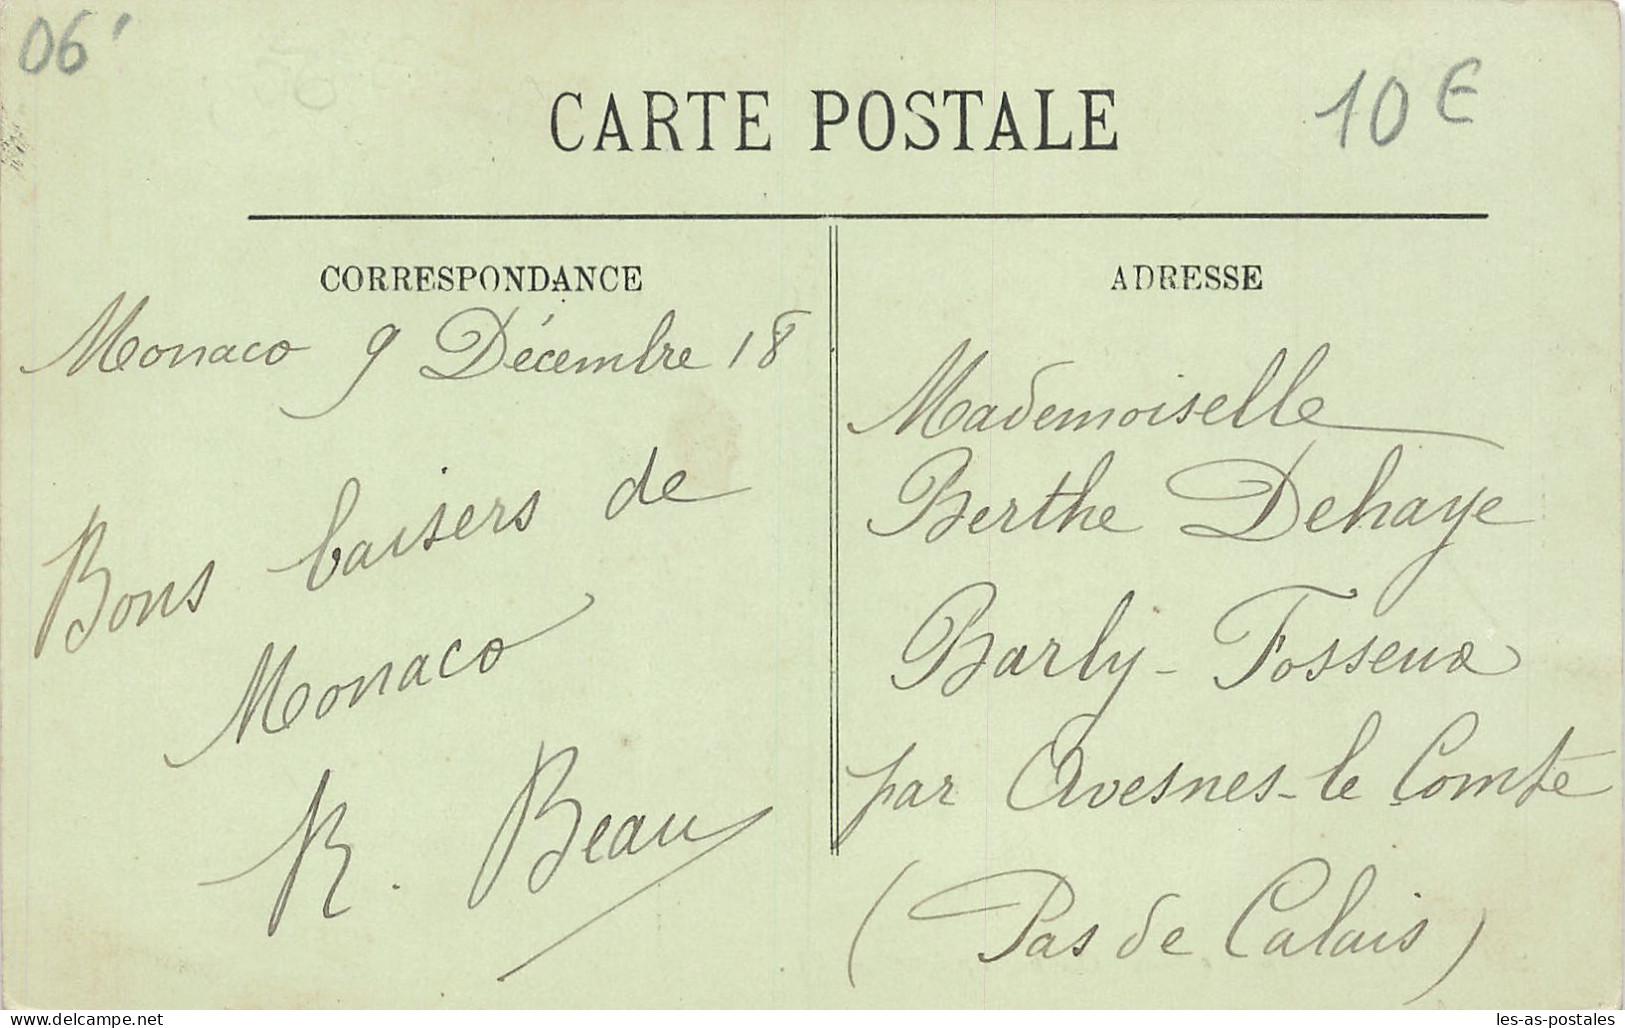 06'
10 €
CARTE POSTALE
CORRESPONDANCE
Monaco 9 Décembre 18
Bons baisers de
Monaco
R. Beau
ADRESSE
Mademoiselle
Berthe Dehaye
Barly-Fosseux
par Avesnes-le Comte
(Pas de Calais)
www.delcampe.net
les-as-postales